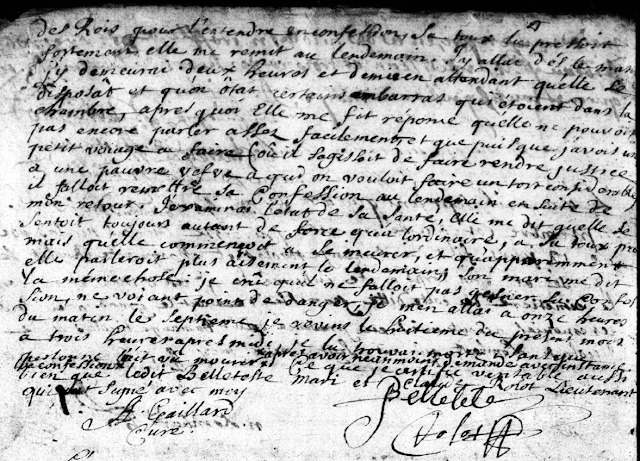 des Rois pour l'entendre en confession, sa toux la pressoit
fortement elle me remit au lendemain. J'y allai dès le matin
j'y demeurai deux heures et demie en attendant qu'elle se
disposat et qu'on ôtat certains embarras qui etoient dans la
chambre, apres quoi Elle me fit reponse qu'elle ne pouvoit
pas encore parler assez facilement et que puis que j'avois un
petit voiage a faire (où il s'agissoit de faire rendre justice
à une pauvre vefve a qui on vouloit faire un tort considerable
il falloit remettre sa Confession au lendemain en suite de
mon retour. J'examinai l'etat de sa santé, Elle me dit qu'elle se
sentoit toujours autant de force qu'a l'ordinaire, a sa toux près
mais qu'elle commençoit a se meurer, et qu'apparemment
elle parleroit plus aisement le lendemain, son mari me dit
la même chose. je crûs qu'il ne falloit pas la Confes
sion, ne voiant point de danger je m'en allai a onze heures
du matin le septieme je revins le huitieme du present mois
à trois heures apres midi je la trouvai morte sans que
personne l'ait vû mourir apres avoir neanmoins demandé avec instance
la confession Ce que je certifie veritable aussi
bien que ledit Belleteste Mari et Claude Colot Lieutenant
qui ont signé avec moy
Gaillard
Curé
Belletete
Colot